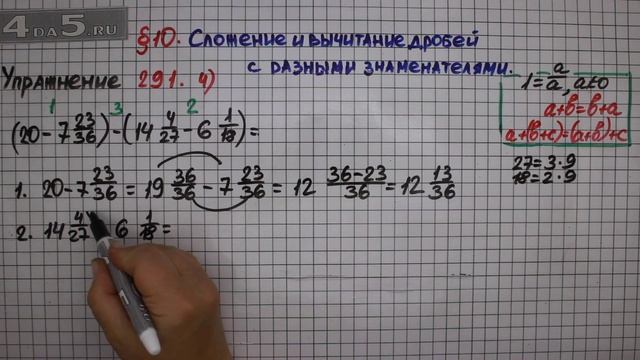 4DA5.RU
§10. Сложение и вычитание дробей
с разными знаменателями.
Упражнение 291. 4)
1 = a/a, a≠0
a+b=b+a
a+(b+c)=(a+b)+c
1 3 2
(20 - 7 23/36) - (14 4/27 - 6 1/18) =
27 = 3·9
18 = 2·9
1. 20 - 7 23/36 = 19 36/36 - 7 23/36 = 12 36-23/36 = 12 13/36
2. 14 4/27 - 6 1/18 =